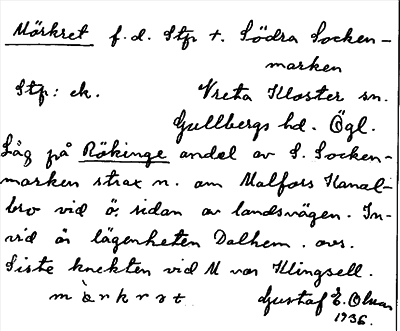 Mörkret f.d. Stp t. Södra Socken-
marken
Stp: ek. Vreta Kloster sn.
Gullbergs hd. Ögl.
Låg på Rökinge andel av S. Socken-
marken strax n. om Malfors Kanal-
bro vid ö. sidan av landsvägen. In-
vid är lägenheten Dalhem. avs.
Siste knekten vid M var Klingsell.
mörkrət Gustaf E. Olsson
1936.